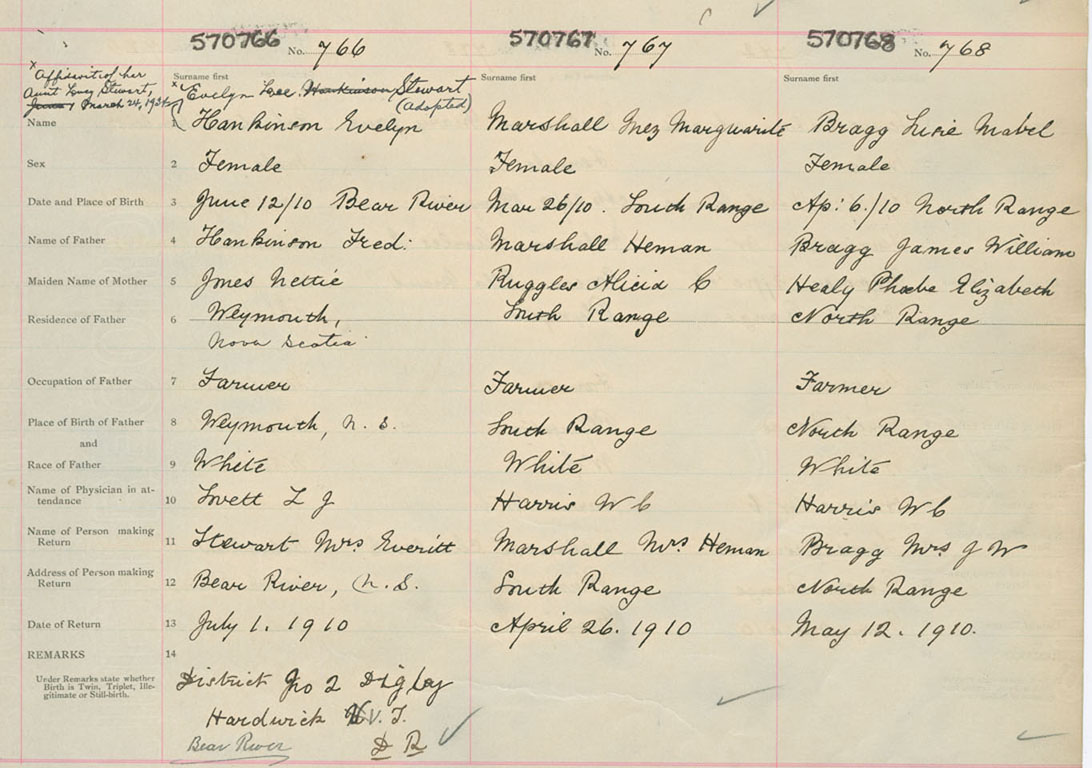 570766 No. 766 570767 No. 767 570768 No. 768
x Affidavit of her
Aunt Lucy Stewart,
March 24, 1934
Surname first Surname first Surname first
x Evelyn Lee Hankinson Stewart
(adopted)
Name 1 Hankinson Evelyn Marshall Inez Marguarite Bragg Lusie Mabel
Sex 2 Female Female Female
Date and Place of Birth 3 June 12/10 Bear River Mar 26/10. South Range Ap: 6./10 North Range
Name of Father 4 Hankinson Fred. Marshall Heman Bragg James William
Maiden Name of Mother 5 Jones Nettie Ruggles Alicia C Healy Phoebe Elizabeth
Residence of Father 6 Weymouth, South Range North Range
Nova Scotia
Occupation of Father 7 Farmer Farmer Farmer
Place of Birth of Father 8 Weymouth, N. S. South Range North Range
and
Race of Father 9 White White White
Name of Physician in at-
tendance 10 Lovett L J Harris W C Harris W C
Name of Person making
Return 11 Stewart Mrs Everitt Marshall Mrs Heman Bragg Mrs J W
Address of Person making
Return 12 Bear River, N. S. South Range North Range
Date of Return 13 July 1. 1910 April 26. 1910 May 12. 1910.
REMARKS 14
Under Remarks state whether
Birth is Twin, Triplet, Ille-
gitimate or Still-birth.
District No 2 Digby
Hardwick V. T.
Bear River D R